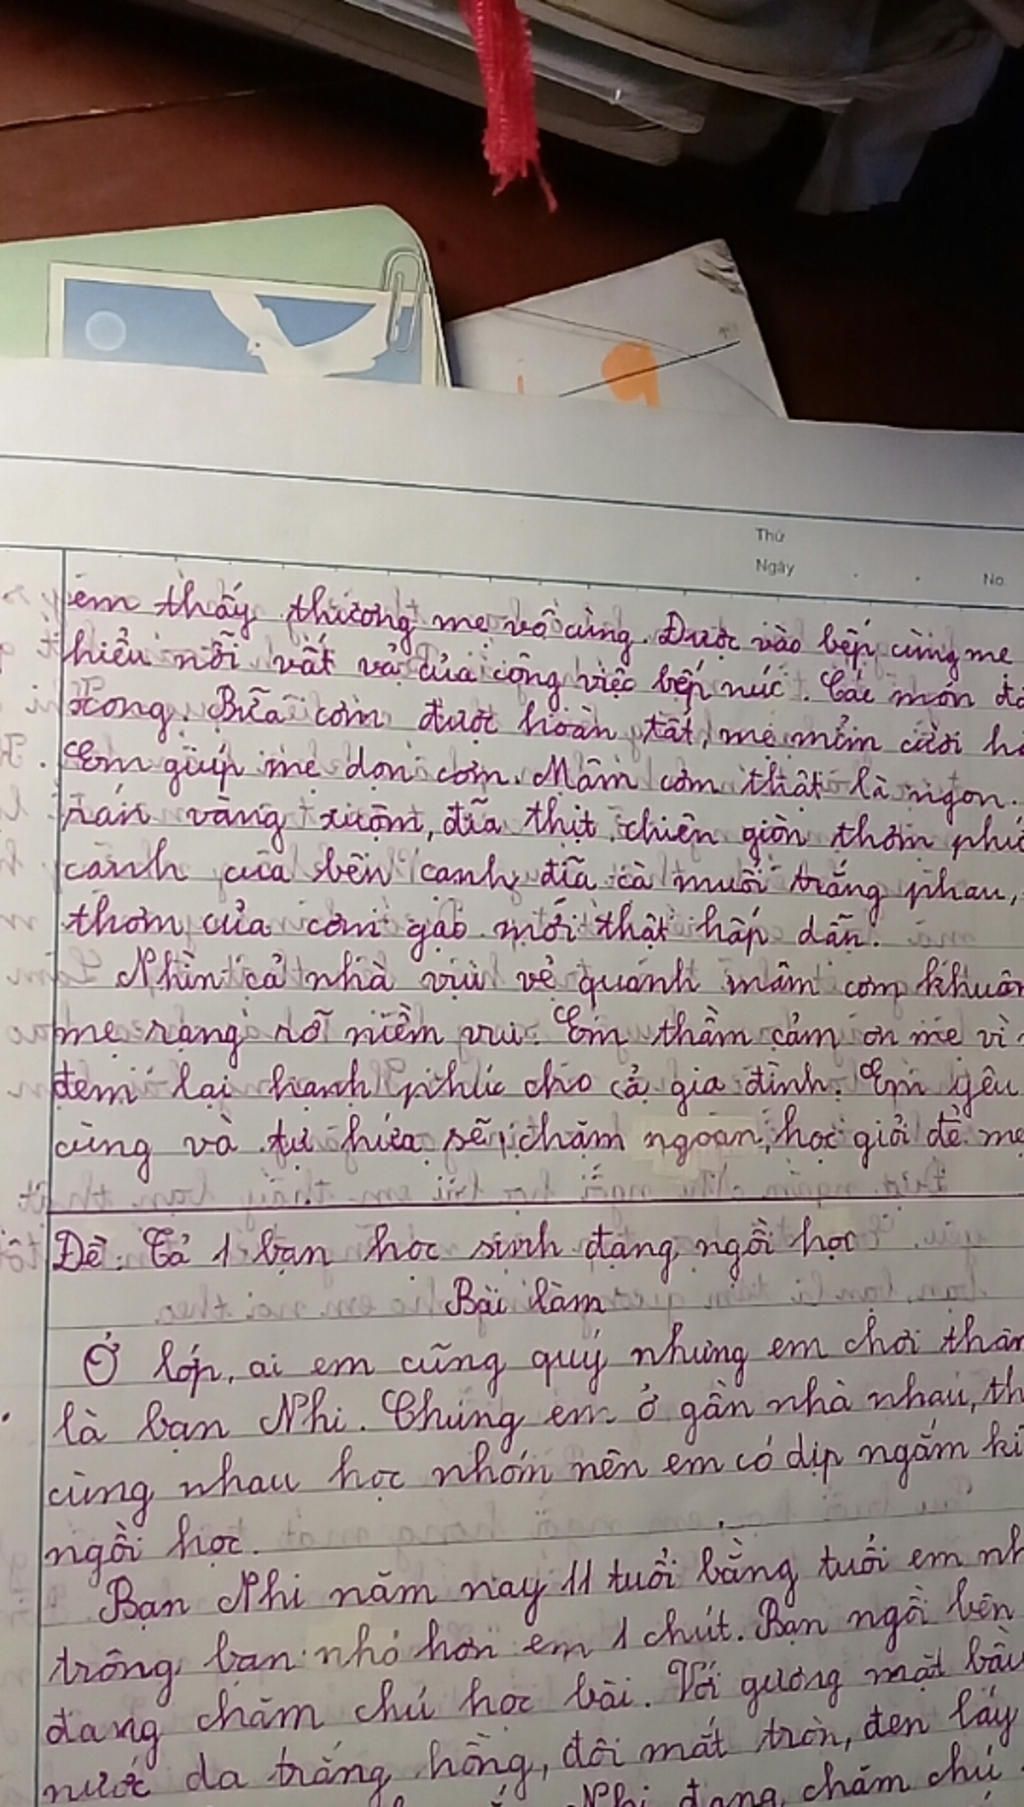 Thứ
Ngày
No
em thấy thương mẹ vô cùng. Được vào bếp cùng mẹ
hiểu nỗi vất vả của công việc bếp núc. Các món đã
xong. Bữa cơm được hoàn tất, mẹ mỉm cười
Em giúp mẹ dọn cơm. Mâm cơm thật là ngon.
rán vàng xuộm, đĩa thịt chiên giòn thơm
canh cua bên cạnh đĩa cà muối trắng phau,
thơm của cơm gạo mới thật hấp dẫn.
Nhìn cả nhà vui vẻ quanh mâm cơm khuôn
mẹ rạng rỡ niềm vui. Em thầm cảm ơn mẹ vì
đem lại hạnh phúc cho cả gia đình. Em yêu
cùng và tự hứa sẽ chăm ngoan, học giỏi để mẹ
Đề: Tả 1 bạn học sinh đang ngồi học
Bài làm
Ở lớp, ai em cũng quý nhưng em chơi thân
là bạn Nhi. Chúng em ở gần nhà nhau,
cùng nhau học nhóm nên em có dịp ngắm
ngồi học.
Bạn Nhi năm nay 11 tuổi bằng tuổi em
trông bạn nhỏ hơn em 1 chút. Bạn ngồi bên
đang chăm chú học bài. Với gương mặt bầu
nước da trắng hồng, đôi mắt tròn, đen láy
Nhi đang chăm chú